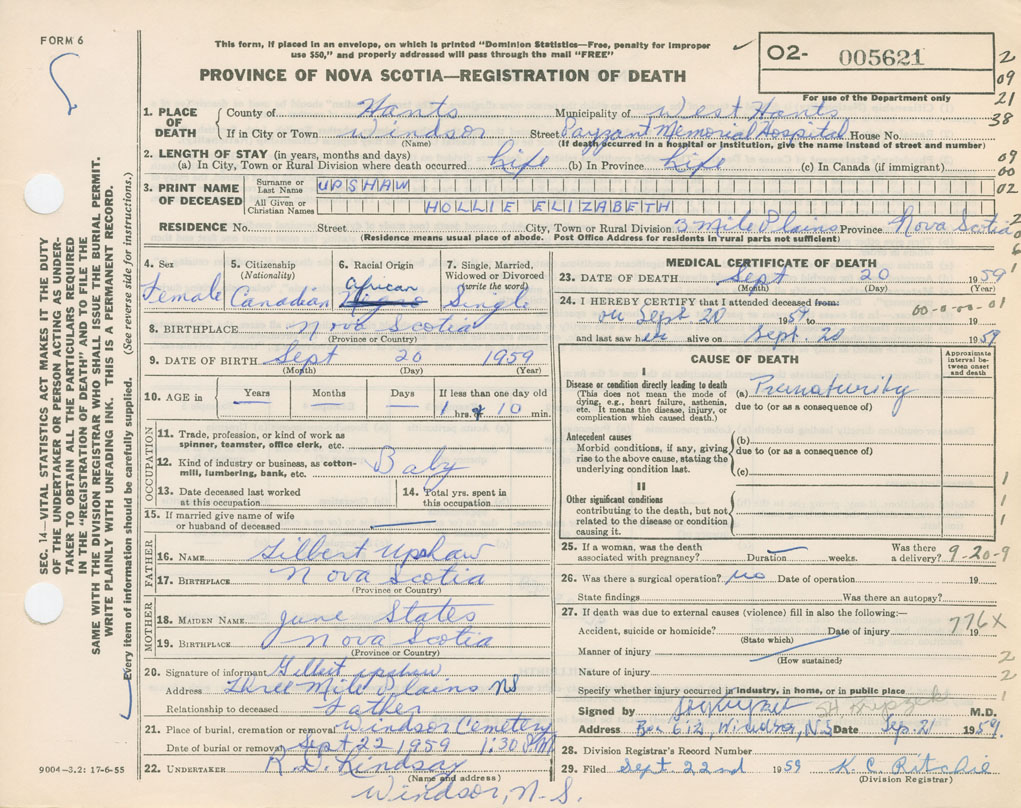 FORM 6
This form, if placed in an envelope, on which is printed "Dominion Statistics—Free, penalty for improper
use $50," and properly addressed will pass through the mail "FREE"
O2- 005621
For use of the Department only
PROVINCE OF NOVA SCOTIA—REGISTRATION OF DEATH
2
09
21
38
09
00
02
2
0
6
1
SEC. 14—VITAL STATISTICS ACT MAKES IT THE DUTY
OF THE UNDERTAKER OR PERSON ACTING AS UNDER-
TAKER TO OBTAIN ALL THE PARTICULARS REQUIRED
IN THE "REGISTRATION OF DEATH" AND TO FILE THE
SAME WITH THE DIVISION REGISTRAR WHO SHALL ISSUE THE BURIAL PERMIT.
WRITE PLAINLY WITH UNFADING INK. THIS IS A PERMANENT RECORD.
Every item of information should be carefully supplied. (See reverse side for instructions.)
1. PLACE OF DEATH
County of Hants Municipality of West Hants
If in City or Town Windsor Street Payzant Memorial Hospital House No.
(Name) (If death occurred in a hospital or institution, give the name instead of street and number)
2. LENGTH OF STAY (in years, months and days)
(a) In City, Town or Rural Division where death occurred Life (b) In Province Life (c) In Canada (if immigrant)
3. PRINT NAME OF DECEASED
Surname or Last Name UPSHAW
All Given or Christian Names HOLLIE ELIZABETH
RESIDENCE No. Street City, Town or Rural Division 3 Mile Plains Province Nova Scotia
(Residence means usual place of abode. Post Office Address for residents in rural parts not sufficient)
4. Sex
Female
5. Citizenship
(Nationality)
Canadian
6. Racial Origin
African
7. Single, Married,
Widowed or Divorced
(write the word)
Single
8. BIRTHPLACE Nova Scotia
(Province or Country)
9. DATE OF BIRTH Sept 20 1959
(Month) (Day) (Year)
10. AGE in Years Months Days If less than one day old
1 hrs. 10 min.
OCCUPATION
11. Trade, profession, or kind of work as
spinner, teamster, office clerk, etc.
12. Kind of industry or business, as cotton-
mill, lumbering, bank, etc.
Baby
13. Date deceased last worked
at this occupation
14. Total yrs. spent in
this occupation
15. If married give name of wife
or husband of deceased
FATHER
16. NAME Gilbert Upshaw
17. BIRTHPLACE Nova Scotia
(Province or Country)
MOTHER
18. MAIDEN NAME June States
19. BIRTHPLACE Nova Scotia
(Province or Country)
20. Signature of informant Gilbert Upshaw
Address Three Mile Plains NS
Relationship to deceased Father
21. Place of burial, cremation or removal Windsor Cemetery
Date of burial or removal Sept 22 1959 1:30 P.M.
22. UNDERTAKER R. D. Lindsay
(Name and address)
Windsor, N.S.
9004—3.2: 17-6-55
MEDICAL CERTIFICATE OF DEATH
23. DATE OF DEATH Sept 20 1959
(Month) (Day) (Year)
24. I HEREBY CERTIFY that I attended deceased from: 00-0-00-01
on Sept 20 1959 to 19
and last saw her alive on Sept. 20 1959
CAUSE OF DEATH
Approximate
interval between
onset
and death
I
Disease or condition directly leading to death
(This does not mean the mode of
dying, e.g., heart failure, asthenia,
etc. It means the disease, injury, or
complication which caused death.)
(a) Prematurity
due to (or as a consequence of)
Antecedent causes
Morbid conditions, if any, giving
rise to the above cause, stating the
underlying condition last.
(b)
due to (or as a consequence of)
(c)
II
Other significant conditions
contributing to the death, but not
related to the disease or condition
causing it.
1
1
1
25. If a woman, was the death
associated with pregnancy? Duration weeks. Was there
a delivery? 9-20-9
26. Was there a surgical operation? no Date of operation 19
State findings Was there an autopsy?
27. If death was due to external causes (violence) fill in also the following:—
Accident, suicide or homicide? Date of injury 19
776X
(State which)
Manner of injury
(How sustained)
2
Nature of injury
2
Specify whether injury occurred in industry, in home, or in public place
1
Signed by M.D.
Address Box 612, Windsor, N.S. Date Sep. 21 1959.
28. Division Registrar's Record Number
29. Filed Sept 22nd 1959 K. C. Ritchie
(Division Registrar)